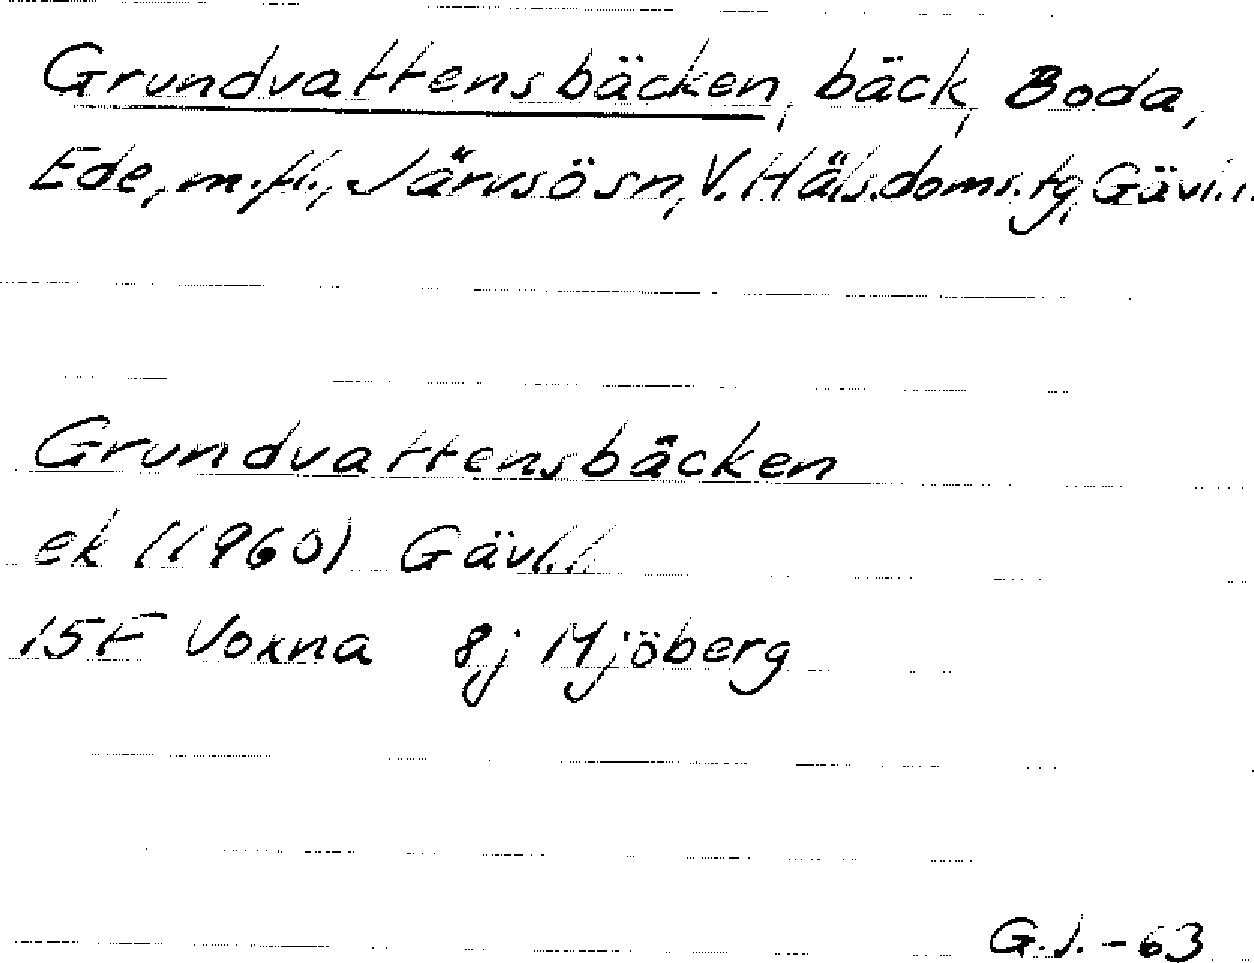 Grundvattensbäcken, bäck, Boda,
Ede, m.fl., Järvsö sn, V. Häls. doms. tg, Gävl. l.
Grundvattensbäcken
ek (1960) Gävl. l.
15F Voxna 8j Mjöberg
G.J. -63